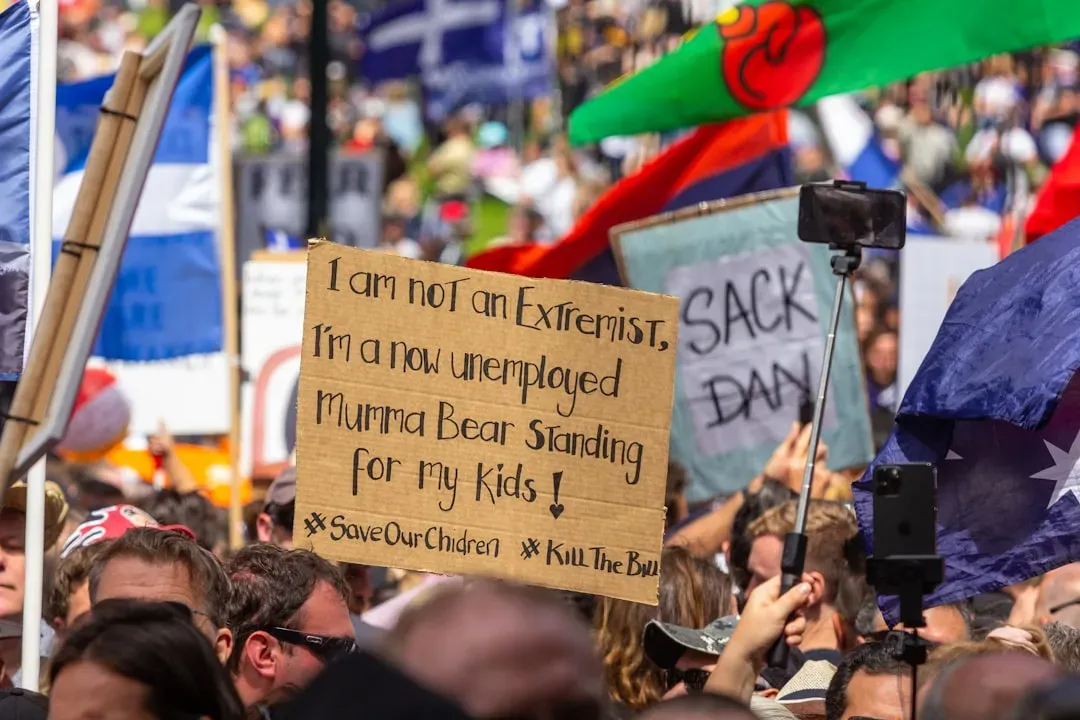 I am not an Extremist,
I'm a now unemployed
Mumma Bear Standing
for my Kids!
#SaveOurChidren #KillTheBill
SACK
DAN